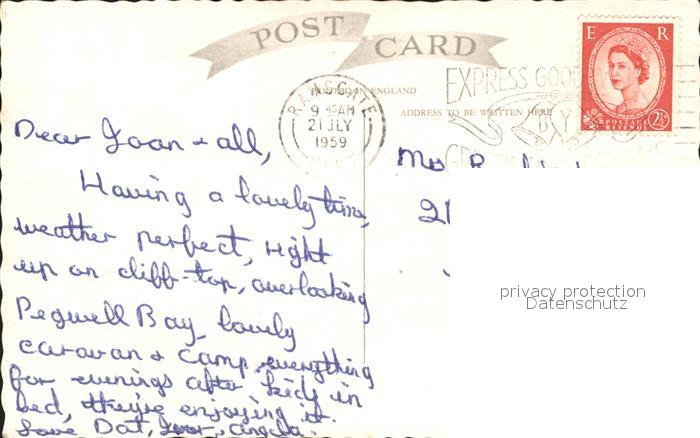 POST CARD
E R
POSTAGE REVENUE
2½
PRINTED IN ENGLAND
EXPRESS GOO
ADDRESS TO BE WRITTEN HERE
BY
RAMSGATE
9 45 AM
21 JLY
1959
Dear Joan & all,
Having a lovely time,
weather perfect, right
up on cliff-top, overlooking
Pegwell Bay, lovely
caravan & camp, everything
for evenings after kids in
bed, they're enjoying it.
Love Dat, Angela.
Mrs
21
privacy protection
Datenschutz